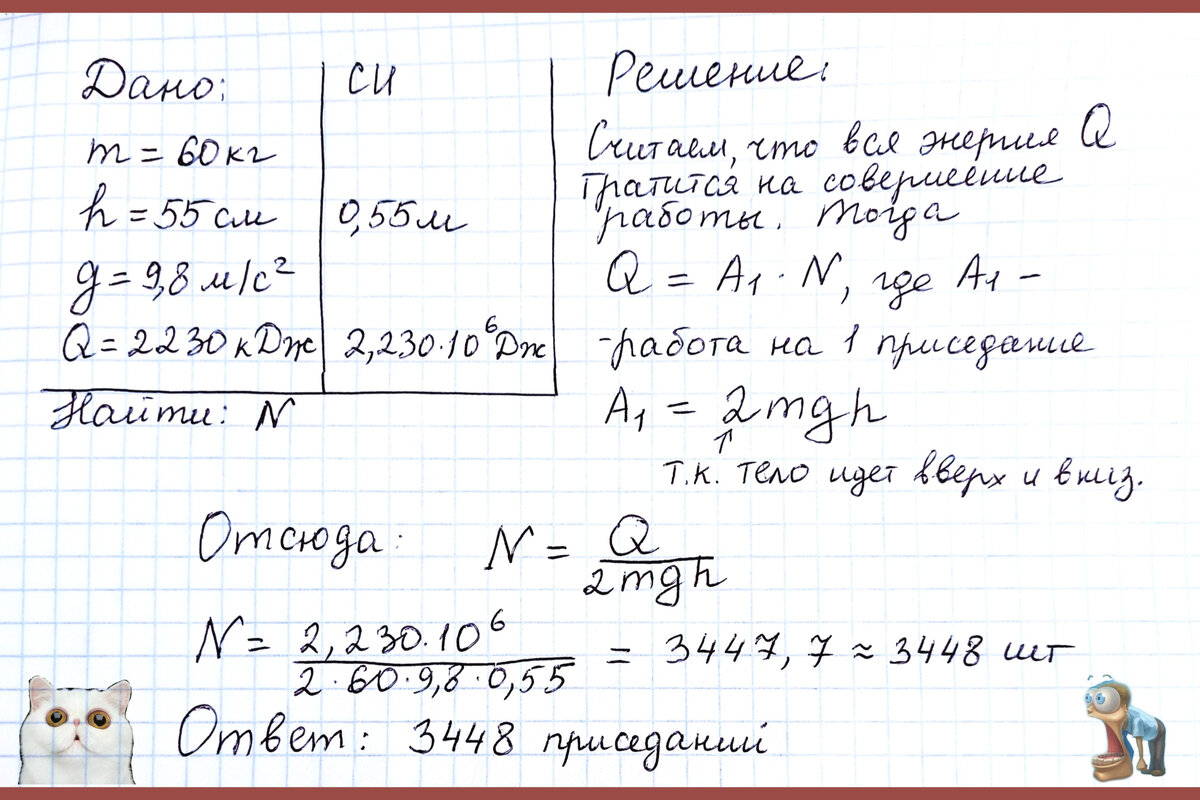 Дано:
СИ
m = 60 кг
h = 55 см
0,55 м
g = 9,8 м/с²
Q = 2230 кДж
2,230·10⁶ Дж
Найти: N
Решение:
Считаем, что вся энергия Q
тратится на совершение
работы. Тогда
Q = A₁ · N, где A₁ –
-работа на 1 приседание
A₁ = 2mgh
↑
т.к. тело идет вверх и вниз.
Отсюда: N = Q / 2mgh
N = 2,230·10⁶ / 2·60·9,8·0,55 = 3447,7 ≈ 3448 шт
Ответ: 3448 приседаний